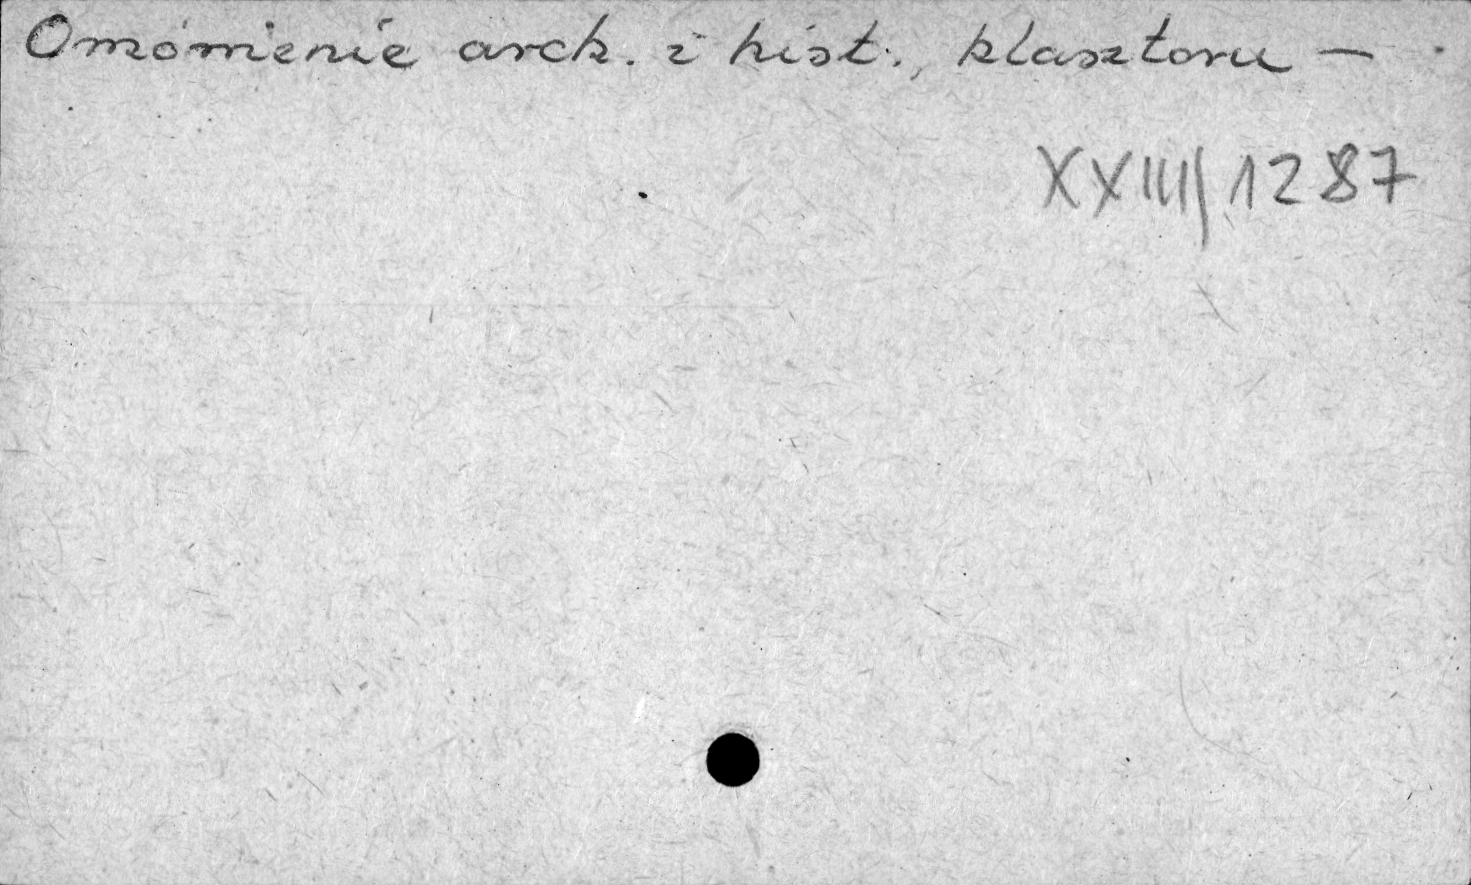 Omówienie arch. i hist., klasztoru —
XXIII/1287